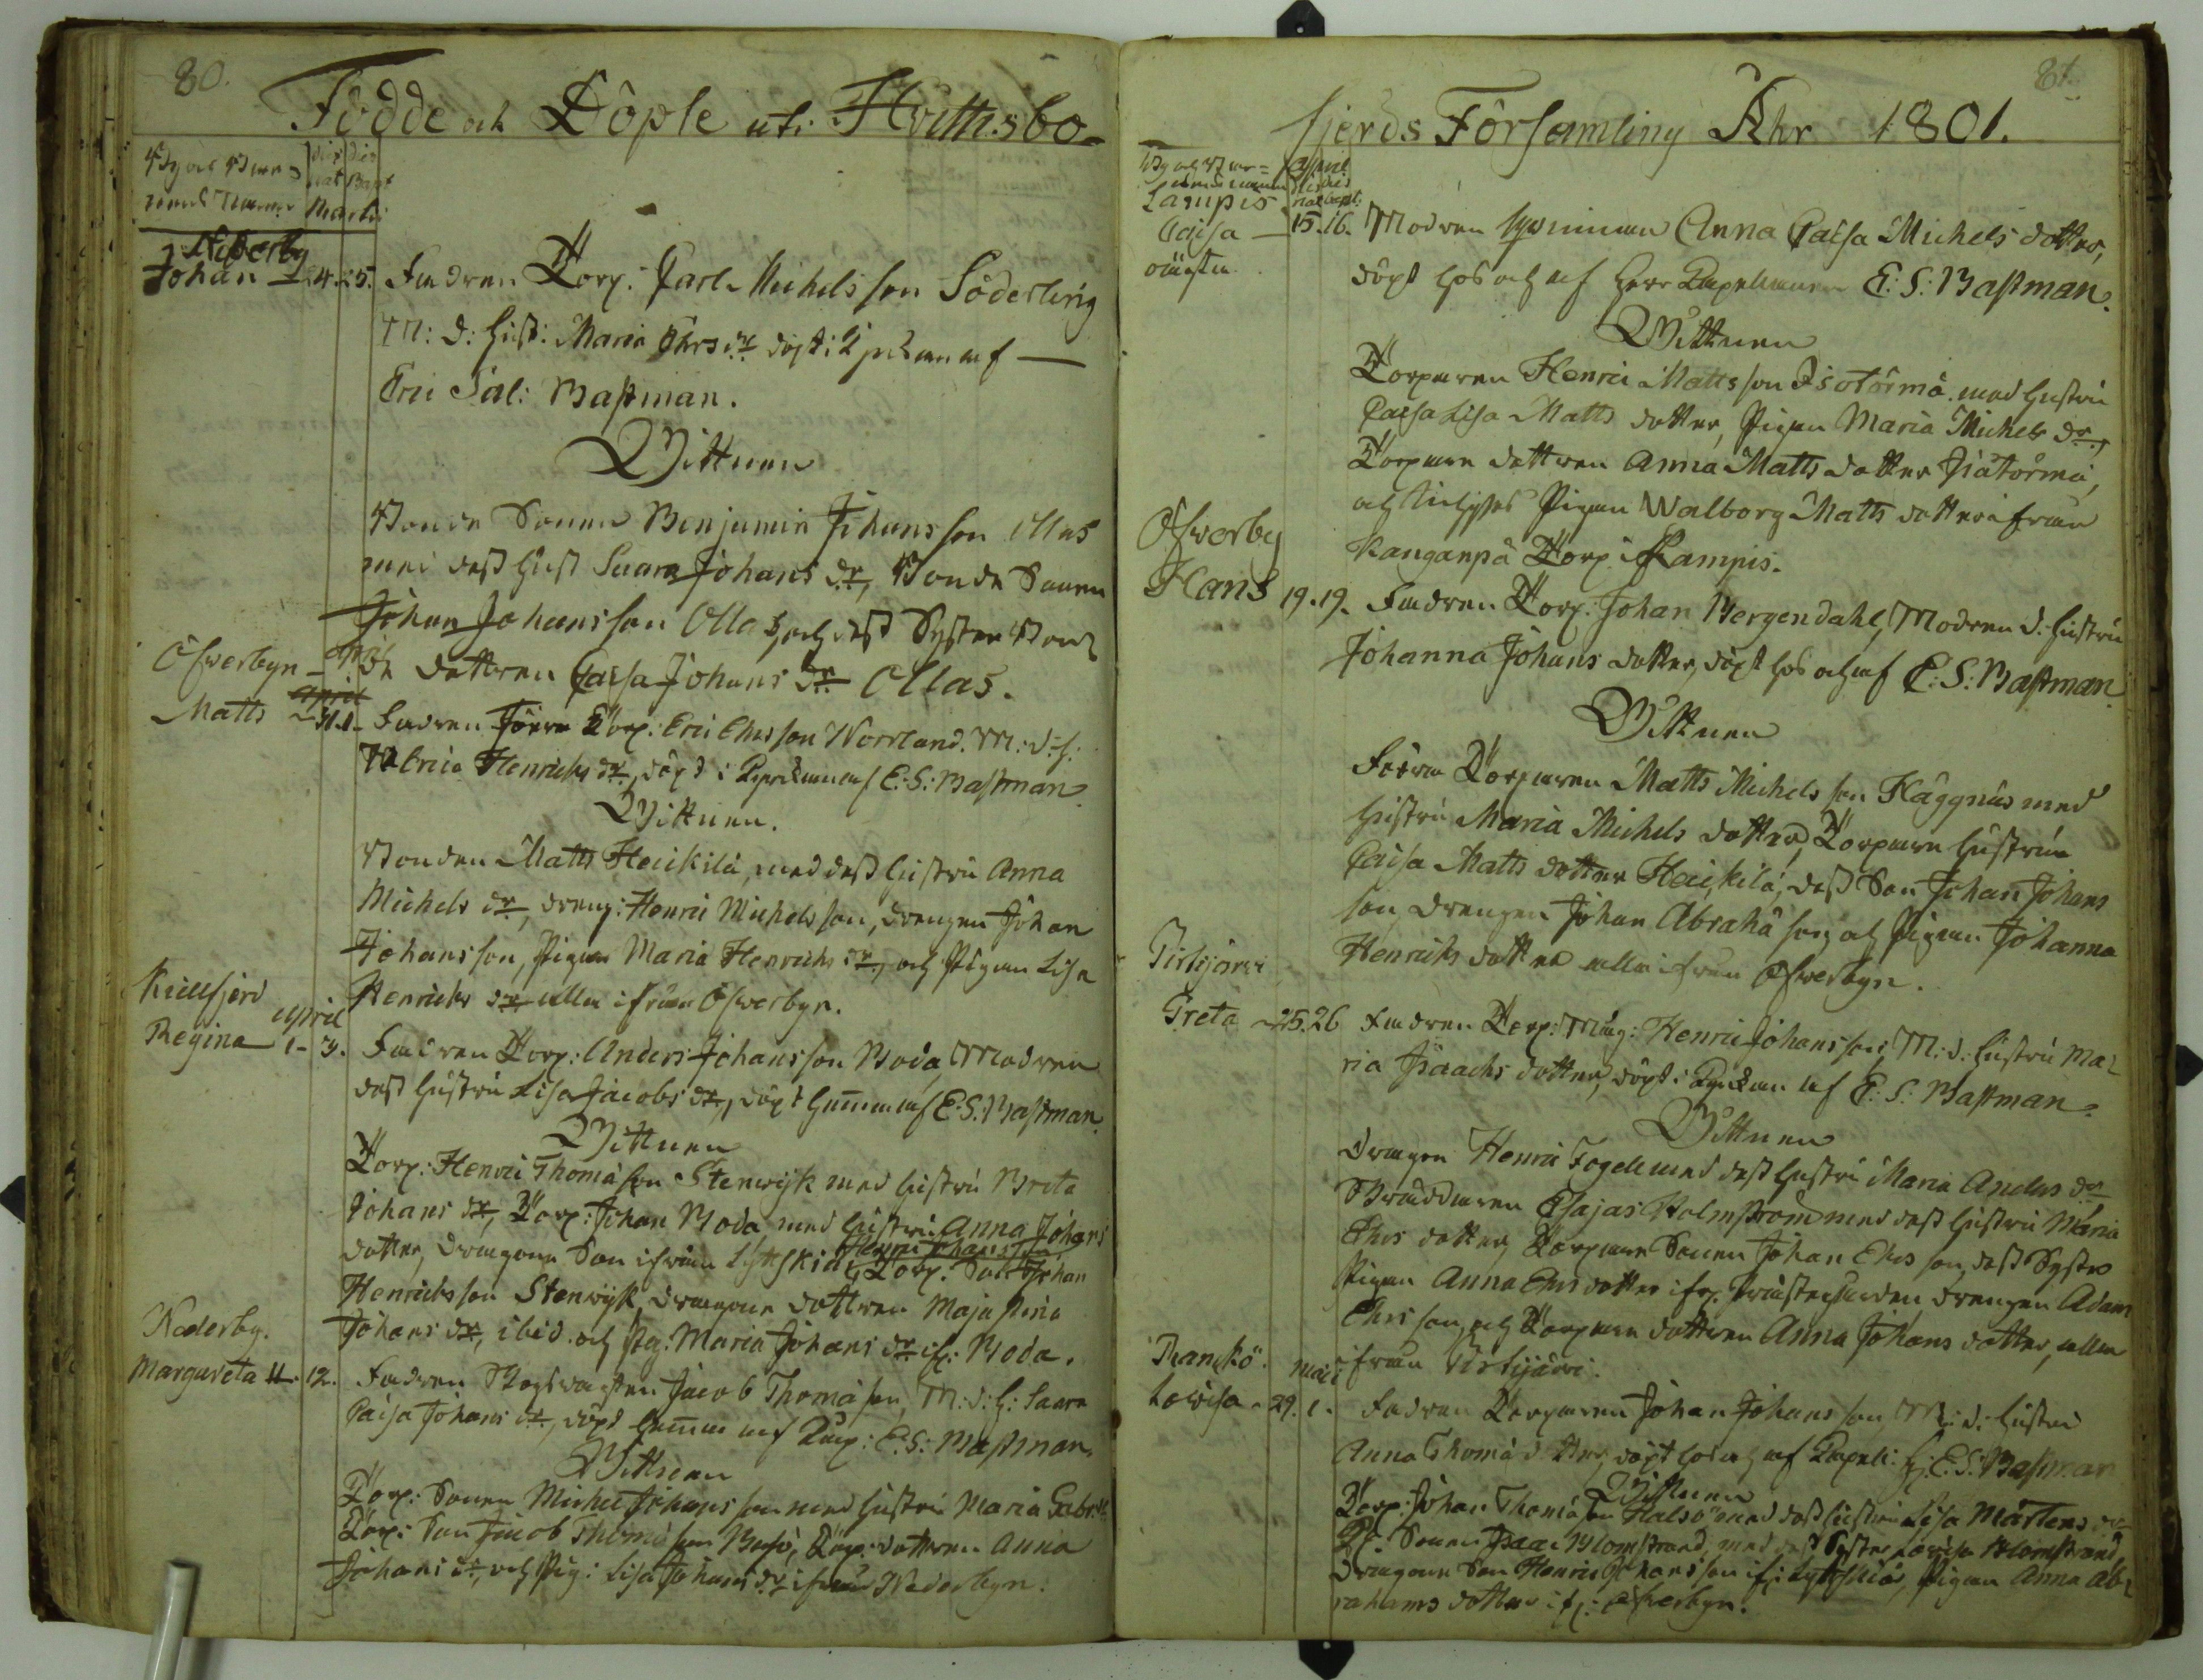 80.
Födde och Döpte uti Hvittisbo-
By och Barn- dies dies
nens Namn nat Bapt
Martii
Nederby
Johan 24. 25. Fadren Torp: Carl Michelsson Söderling
M: d: Hust: Maria Ehrsdr döpt i Kyrckan af
Eric Sal: Bastman.
Wittnen
Bonde Sonen Benjamin Johansson Ollas
med dess Hust Saara Johans dr, Bonde Sonen
Johan Johansson Ollas, och dess Syster Bon-
de dottren Caisa Johans dr Ollas.
Öfwerbyn
April
Matts 31. 1. Fadren Förra Torp: Eric Ehrsson Norrland. M: d: h:
Walbria Henrichs dr, döpt i Kyrckan af E: S: Bastman
Wittnen.
Bonden Matts Heickilä, med dess Hustru Anna
Michels dr, dreng: Henric Michelsson, drengen Johan
Johansson, Pigan Maria Henrichs dr, och Pigan Lisa
Henrichs dr alla ifrån Öfwerbyn.
Kiilfjerd
April
Regina 1. 3. Fadren Torp: Anders Johansson Boda, Modren
dess Hustru Lisa Jacobs dr, döpt hemma af E: S: Bastman.
Wittnen
Torp: Henric Thomasson Stenwijk med Hustru Breta
Johans dr, Torp: Johan Boda med Hustru Anna Johans
dotter, dragone Son ifrån Lyttskiär Henric Johansson, Torp: Son Johan
Henrichsson Stenwijk, dragone dottren Maja Stina
Johans dr, ibid. och Pig: Maria Johans dr if: Boda.
Nederby.
Margareta 11. 12. Fadren Skogswaktern Jacob Thomasson, M: d: H: Saara
Caisa Johans dr, döpt hemma af Cap: E: S: Bastman.
Wittnen
Torp: Sonen Michel Johansson med Hustru Maria Gabr:
Torp: Son Jacob Thomasson Busö, Torp: dottren Anna
Johans dr, och Pig: Lisa Johans dr ifrån Nederbyn.
81.
fjerds Församling Åhr 1801.
By och Barn- April
nens namn dies dies
Lampis nat bapt:
Caisa 15. 16. Modren Qwinnan Anna Caisa Michels dotter,
oäkta döpt hos och af Herr Capellanen E: S: Bastman.
Wittnen
Torparen Henric Mattsson Isotörmä med Hustru
Caisa Lisa Matts dotter, Pigan Maria Michels dr,
Torpare dottren Anna Matts dotter Isätörmä,
och Pigan Walborg Matts dotter ifrån
Kanganpä Torp i Lampis.
Öfwerby
Hans 19. 19. Fadren Torp: Johan Bergendahl, Modren d. Hustru
Johanna Johans dotter, döpt hos och af E: S: Bastman
Wittnen
Förra Torparen Matts Michelsson Häggnäs med
Hustru Maria Michels dotter, Torpare Hustrun
Caisa Matts dotter Heickilä, dess Son Johan Johans
son, drengen Johan Abrahasson, och Pigan Johanna
Henrichs dotter alla ifrån Öfwerbyn.
Pirtijärvi
Greta 25. 26 Fadren Torp: Måg: Henric Johansson, M: d: Hustru Ma-
ria Isaachs dotter, döpt i Kyrckan af E: S: Bastman.
Wittnen
Drengen Henric Fogel med dess Hustru Maria Anders dr
Skräddaren Esajas Holmström med dess Hustru Maria
Ehrs dotter, Torpare Sonen Johan Ehrsson, dess Syster
Pigan Anna Ehrs dotter ifr: Prästegården, drengen Adam
Ehrsson, och Torpare dottren Anna Johans dotter, alla
ifrån Pirtijärvi.
Ramskö Maii
Lovisa 29. 1. Fadren Torparen Johan Johansson, M: d: Hustru
Anna Thoma dotter, döpt hos och af Capell: H: E: S: Bastman
Wittnen
Torp: Johan Thomasson Halsö med dess Hustru Lisa Mårtens dr
Sonen Isaac Blomstrand, med dess Syster Lovisa Blomstrand
dragone Son Henric Johansson if: Lyttskiär, Pigan Anna Ab-
rahams dotter if: Öfwerbyn.